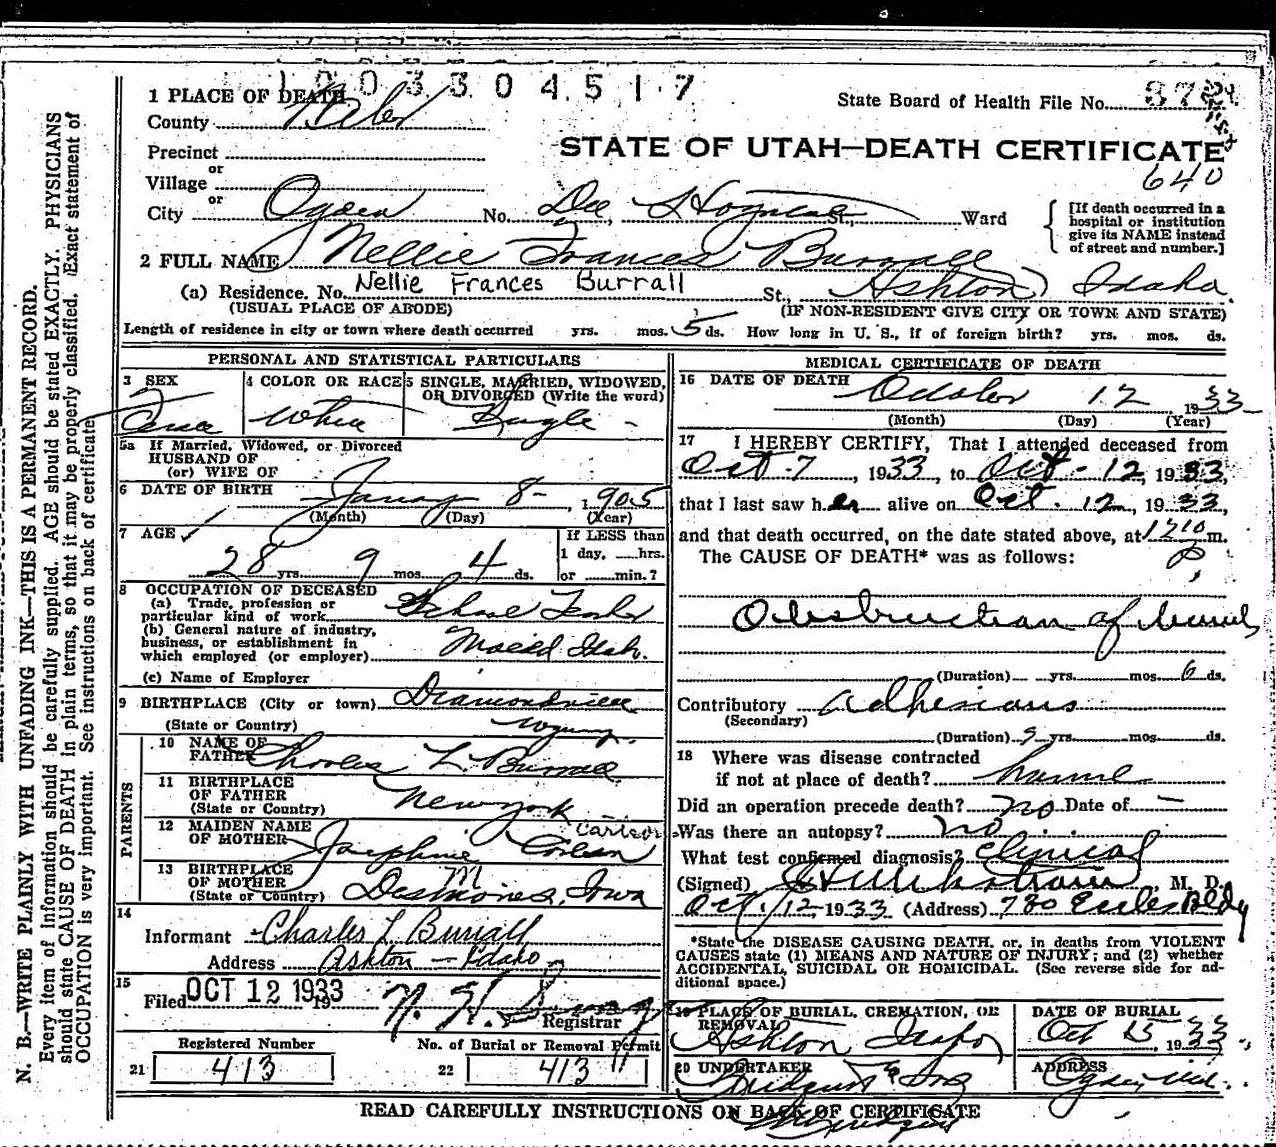 1003304517
1 PLACE OF DEATH
State Board of Health File No.
County Weber
Precinct
STATE OF UTAH—DEATH CERTIFICATE
640
or
Village
or
City Ogden No. Dee Hospital St., Ward
[If death occurred in a hospital or institution give its NAME instead of street and number.]
2 FULL NAME Nellie Frances Burrall
(a) Residence. No. Nellie Frances Burrall St., Ashton, Idaho.
(USUAL PLACE OF ABODE) (IF NON-RESIDENT GIVE CITY OR TOWN AND STATE)
Length of residence in city or town where death occurred yrs. mos. 5 ds. How long in U. S., if of foreign birth? yrs. mos. ds.
PERSONAL AND STATISTICAL PARTICULARS
3 SEX 4 COLOR OR RACE 5 SINGLE, MARRIED, WIDOWED, OR DIVORCED (Write the word)
White Single
5a If Married, Widowed, or Divorced
HUSBAND OF
(or) WIFE OF
6 DATE OF BIRTH 8 - , 1905
(Month) (Day) (Year)
7 AGE
If LESS than
1 day, ....hrs.
or ......min.?
28 yrs. 9 mos. 4 ds.
8 OCCUPATION OF DECEASED
(a) Trade, profession or
particular kind of work School Teacher
(b) General nature of industry,
business, or establishment in
which employed (or employer) Idah.
(c) Name of Employer
9 BIRTHPLACE (City or town) Diamondville
(State or Country)
PARENTS
10 NAME OF
FATHER Charles L. Burrall
11 BIRTHPLACE
OF FATHER New York
(State or Country)
12 MAIDEN NAME
OF MOTHER Josephine Carlson
13 BIRTHPLACE
OF MOTHER
(State or Country) Desmoines, Iowa
14
Informant Charles L Burrall
Address Ashton - Idaho
15
Filed OCT 12 1933
Registrar
Registered Number No. of Burial or Removal Permit
21 413 22 413
MEDICAL CERTIFICATE OF DEATH
16 DATE OF DEATH October 12 1933
(Month) (Day) (Year)
17 I HEREBY CERTIFY, That I attended deceased from
Oct-7, 1933, to Oct-12, 1933,
that I last saw her alive on Oct. 12, 1933,
and that death occurred, on the date stated above, at 1210 P m.
The CAUSE OF DEATH* was as follows:
Obstruction of bowels
(Duration) yrs. mos. 6 ds.
Contributory adhesions
(Secondary)
(Duration) yrs. mos. ds.
18 Where was disease contracted
if not at place of death? home
Did an operation precede death? no Date of —
Was there an autopsy? no
What test confirmed diagnosis? Clinical
(Signed) , M. D.
Oct, 12, 1933 (Address) Eccles Bldg
*State the DISEASE CAUSING DEATH, or, in deaths from VIOLENT
CAUSES state (1) MEANS AND NATURE OF INJURY; and (2) whether
ACCIDENTAL, SUICIDAL OR HOMICIDAL. (See reverse side for ad-
ditional space.)
19 PLACE OF BURIAL, CREMATION, OR REMOVAL DATE OF BURIAL
Ashton Idaho Oct 15, 1933
20 UNDERTAKER ADDRESS
READ CAREFULLY INSTRUCTIONS ON BACK OF CERTIFICATE
N. B.—WRITE PLAINLY WITH UNFADING INK—THIS IS A PERMANENT RECORD.
Every item of information should be carefully supplied. AGE should be stated EXACTLY. PHYSICIANS
should state CAUSE OF DEATH in plain terms, so that it may be properly classified. Exact statement of
OCCUPATION is very important. See instructions on back of certificate